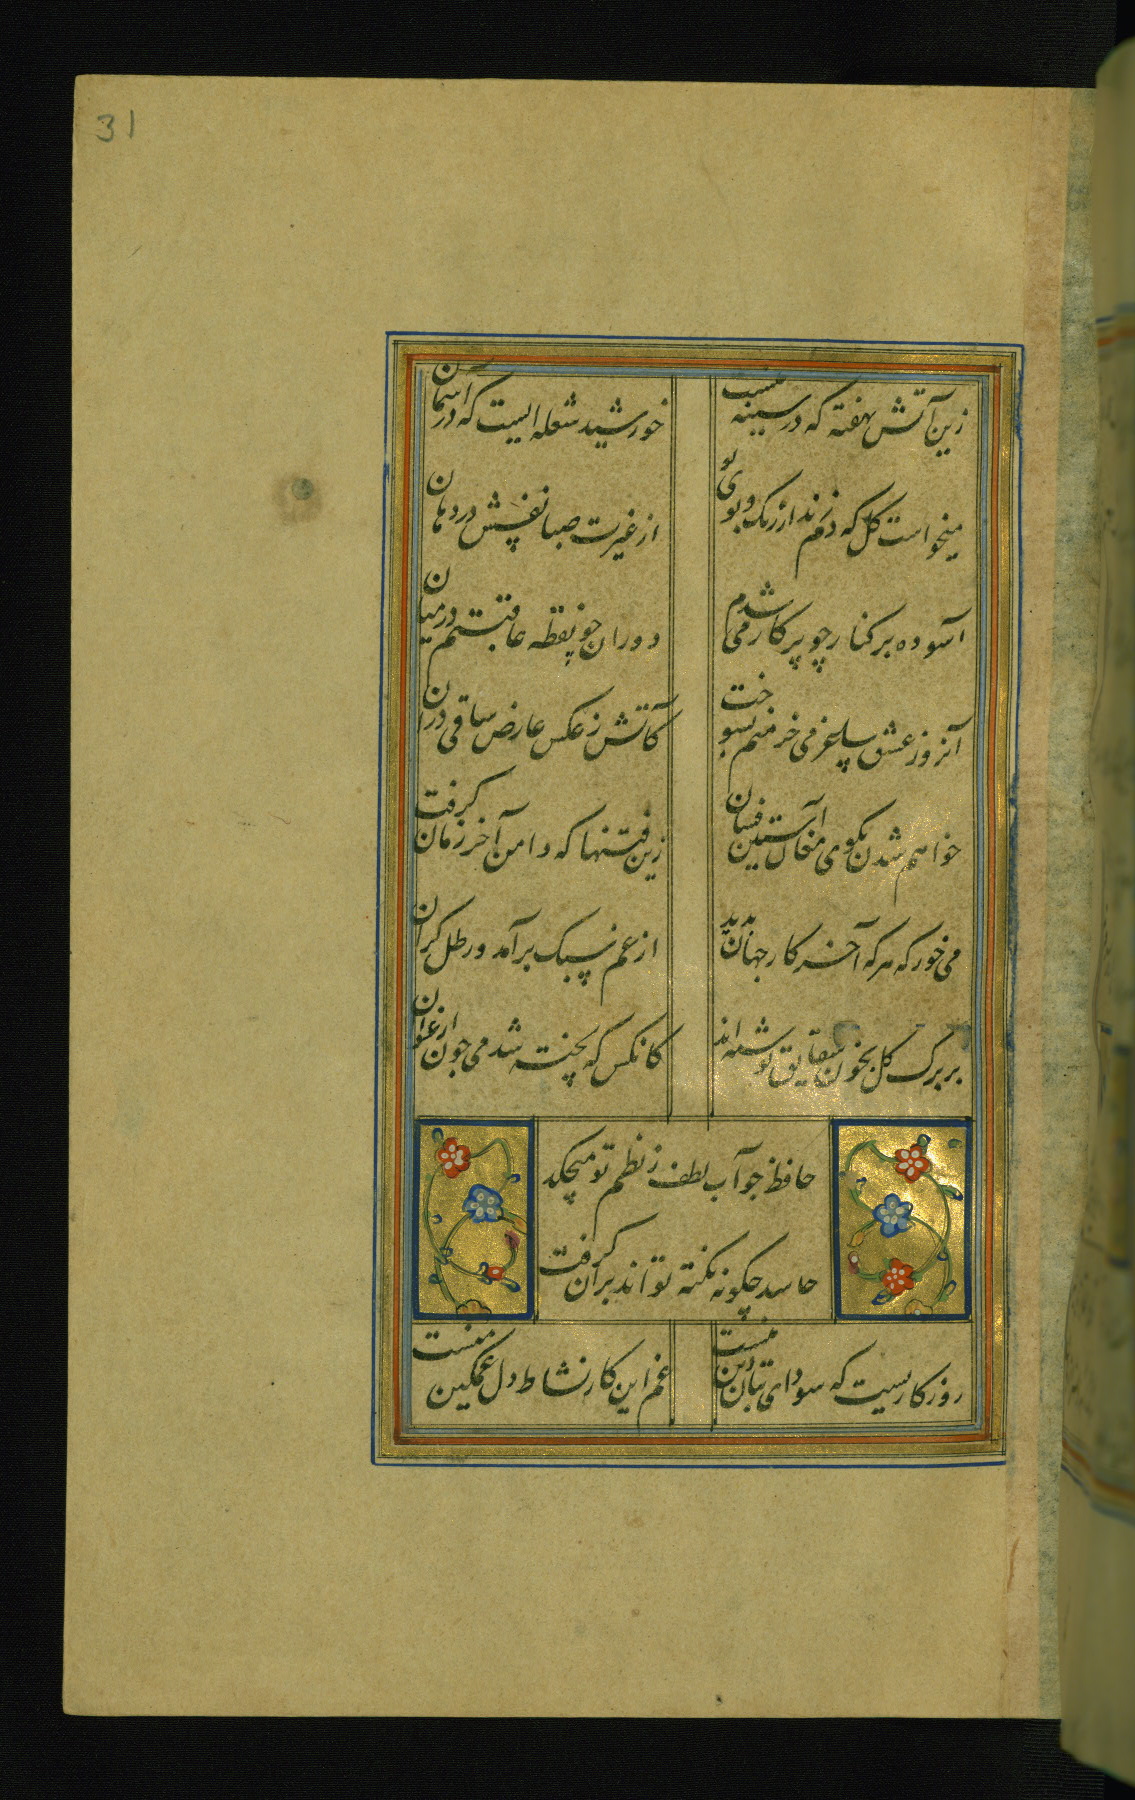 31
زین آتش نهفته که در سینه منست
خورشید شعله ایست که در آسمان
میخواست گل که دم زند از رنگ و بوی تو
از غیرت صبا نفسش در دهان
آسوده بر کنار چو پرکار می شدم
دوران چو نقطه عاقبتم در میان
آنروز عشق ساغر می خرمنم بسوخت
کآتش ز عکس عارض ساقی در ان
خواهم شدن بکوی مغان آستین فشان
زین فتنها که دامن آخر زمان گرفت
می خور که هر که آخر کار جهان بدید
از غم سبک برآمد و رطل گران
بر برگ گل بخون شقایق نوشته اند
کانکس که پخته شد می چون ارغوان
حافظ چو آب لطف ز نظم تو میچکد
حاسد چگونه نکته تواند بر آن گرفت
روزکاریست که سودای بتان دین منست
غم این کار نشاط دل غمکین منست